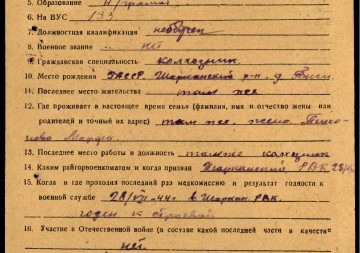 5. Образование н/грамот
6. На ВУС 133
7. Должностная квалификация необучен
8. Военное звание нет
9. Гражданская специальность колхозник
10. Место рождения ТАССР. р-н, д.
11. Последнее место жительства там же
12. Где проживает в настоящее время семья (фамилия, имя и отчество жены или
родителей и точный их адрес) там же. жена.
Марфа
13. Последнее место работы и должность там же колхозник
14. Каким райгорвоенкоматом и когда призван РВК
15. Когда и где проходил последний раз медкомиссию и результат годности к
военной службе 28/VII-44г. в РВК
годен к строевой
16. Участие в Отечественной войне (в составе какой последней части и качестве
нет.